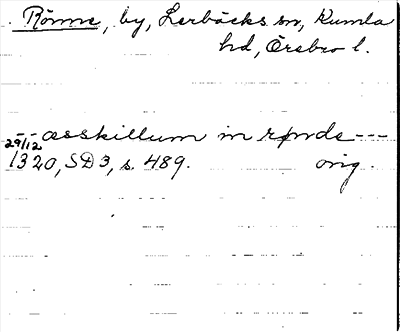 Rönne, by, Lerbäcks sn, Kumla
hd, Örebro l.
-- æsskillum in rønde ---
29/12
1320, SD 3, s. 489. orig.